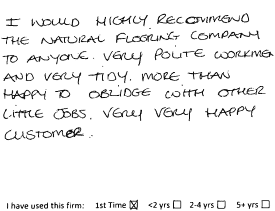 I WOULD HIGHLY RECOMMEND
THE NATURAL FLOORING COMPANY
TO ANYONE. VERY POLITE WORKMEN
AND VERY TIDY. MORE THAN
HAPPY TO OBLIDGE WITH OTHER
LITTLE JOBS. VERY VERY HAPPY
CUSTOMER.
I have used this firm: 1st Time ☒ <2 yrs ☐ 2-4 yrs ☐ 5+ yrs ☐